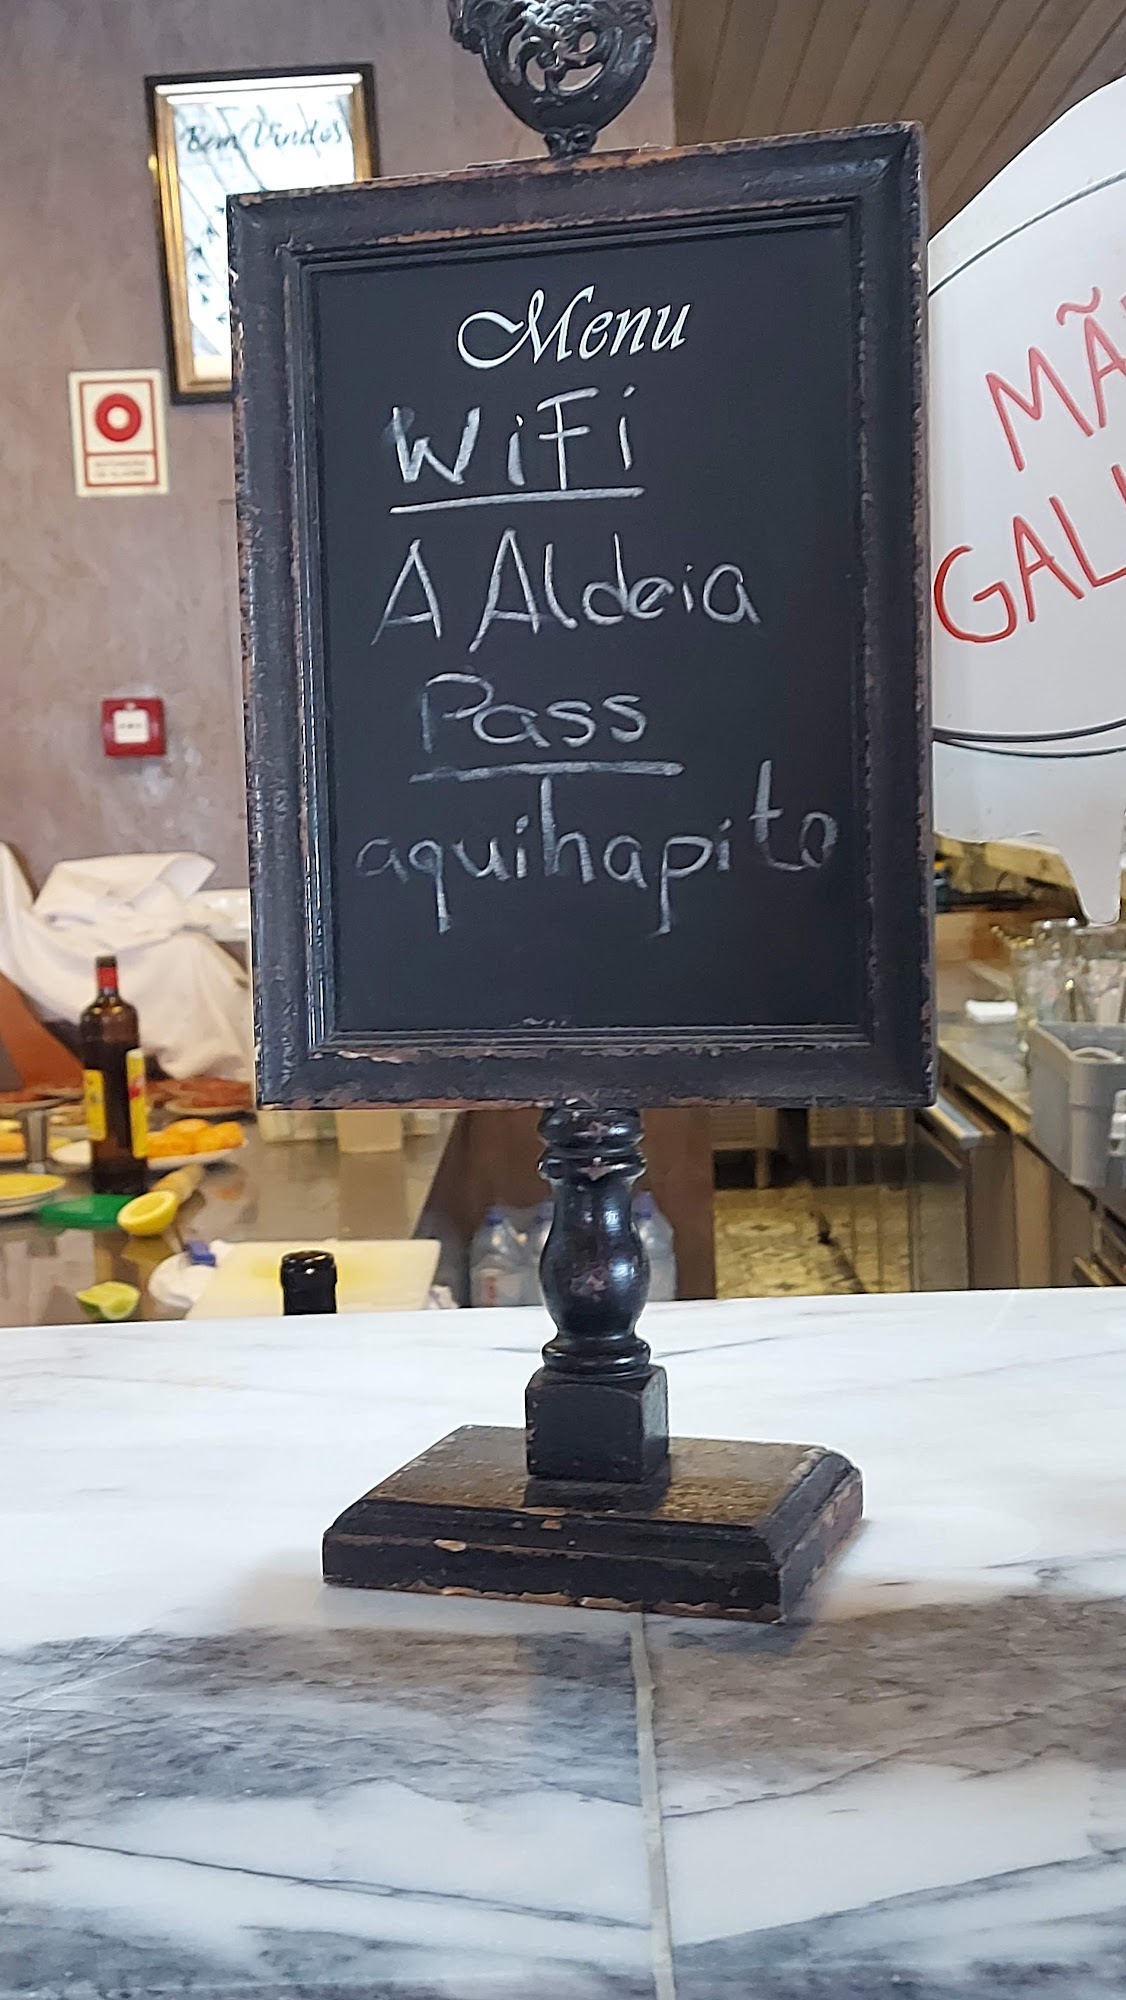 Bem Vindos
Menu
WiFi
A Aldeia
Pass
aquihapito
MÃ
GAL